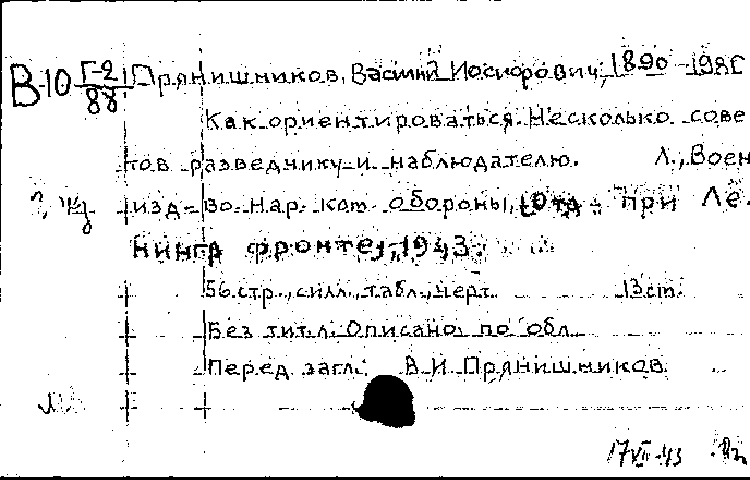 В-10 Г-2/88 Прянишников, Василий Иосифович, 1890-198
Как ориентироваться. Несколько сове
тов разведчику и наблюдателю. Л., Воен
изд-во Нар. ком. обороны, (Отд. при Ле-
нингр фронте), 1943.
56 стр., с илл., табл., черт. 13 cm.
Без тит. л. Описано по обл.
Перед загл.: В. И. Прянишников
17 VII-43